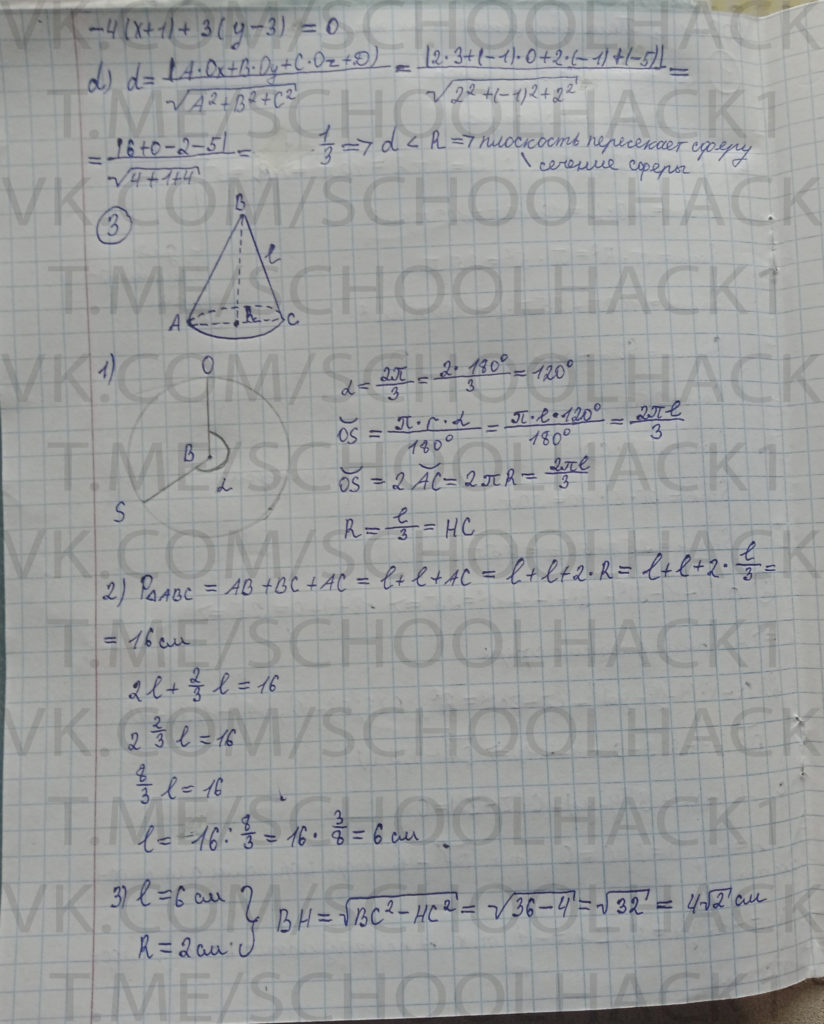 -4(x+1)+3(y-3) = 0
d) d = |A·Ox+B·Oy+C·Oz+D| / √(A²+B²+C²) = |2·3+(-1)·0+2·(-1)+(-5)| / √(2²+(-1)²+2²) =
= |6+0-2-5| / √(4+1+4) = 1/3 => d < R => плоскость пересекает сферу
\ сечение сферы
3
B
l
A R C
1) O
B
α
S
α = 2π/3 = 2·180°/3 = 120°
OS = π·r·α/180° = π·l·120°/180° = 2πl/3
OS = 2 AC = 2πR = 2πl/3
R = l/3 = HC
2) P△ABC = AB+BC+AC = l+l+AC = l+l+2·R = l+l+2·l/3 =
= 16 см
2l + 2/3 l = 16
2 2/3 l = 16
8/3 l = 16
l = 16 : 8/3 = 16 · 3/8 = 6 см
3) l = 6 см } BH = √(BC²-HC²) = √(36-4) = √32 = 4√2 см
R = 2 см
T.ME/SCHOOLHACK1
VK.COM/SCHOOLHACK
T.ME/SCHOOLHACK1
VK.COM/SCHOOLHACK
T.ME/SCHOOLHACK1
VK.COM/SCHOOLHACK
T.ME/SCHOOLHACK1
VK.COM/SCHOOLHACK
T.ME/SCHOOLHACK1
VK.COM/SCHOOLHACK
T.ME/SCHOOLHACK1